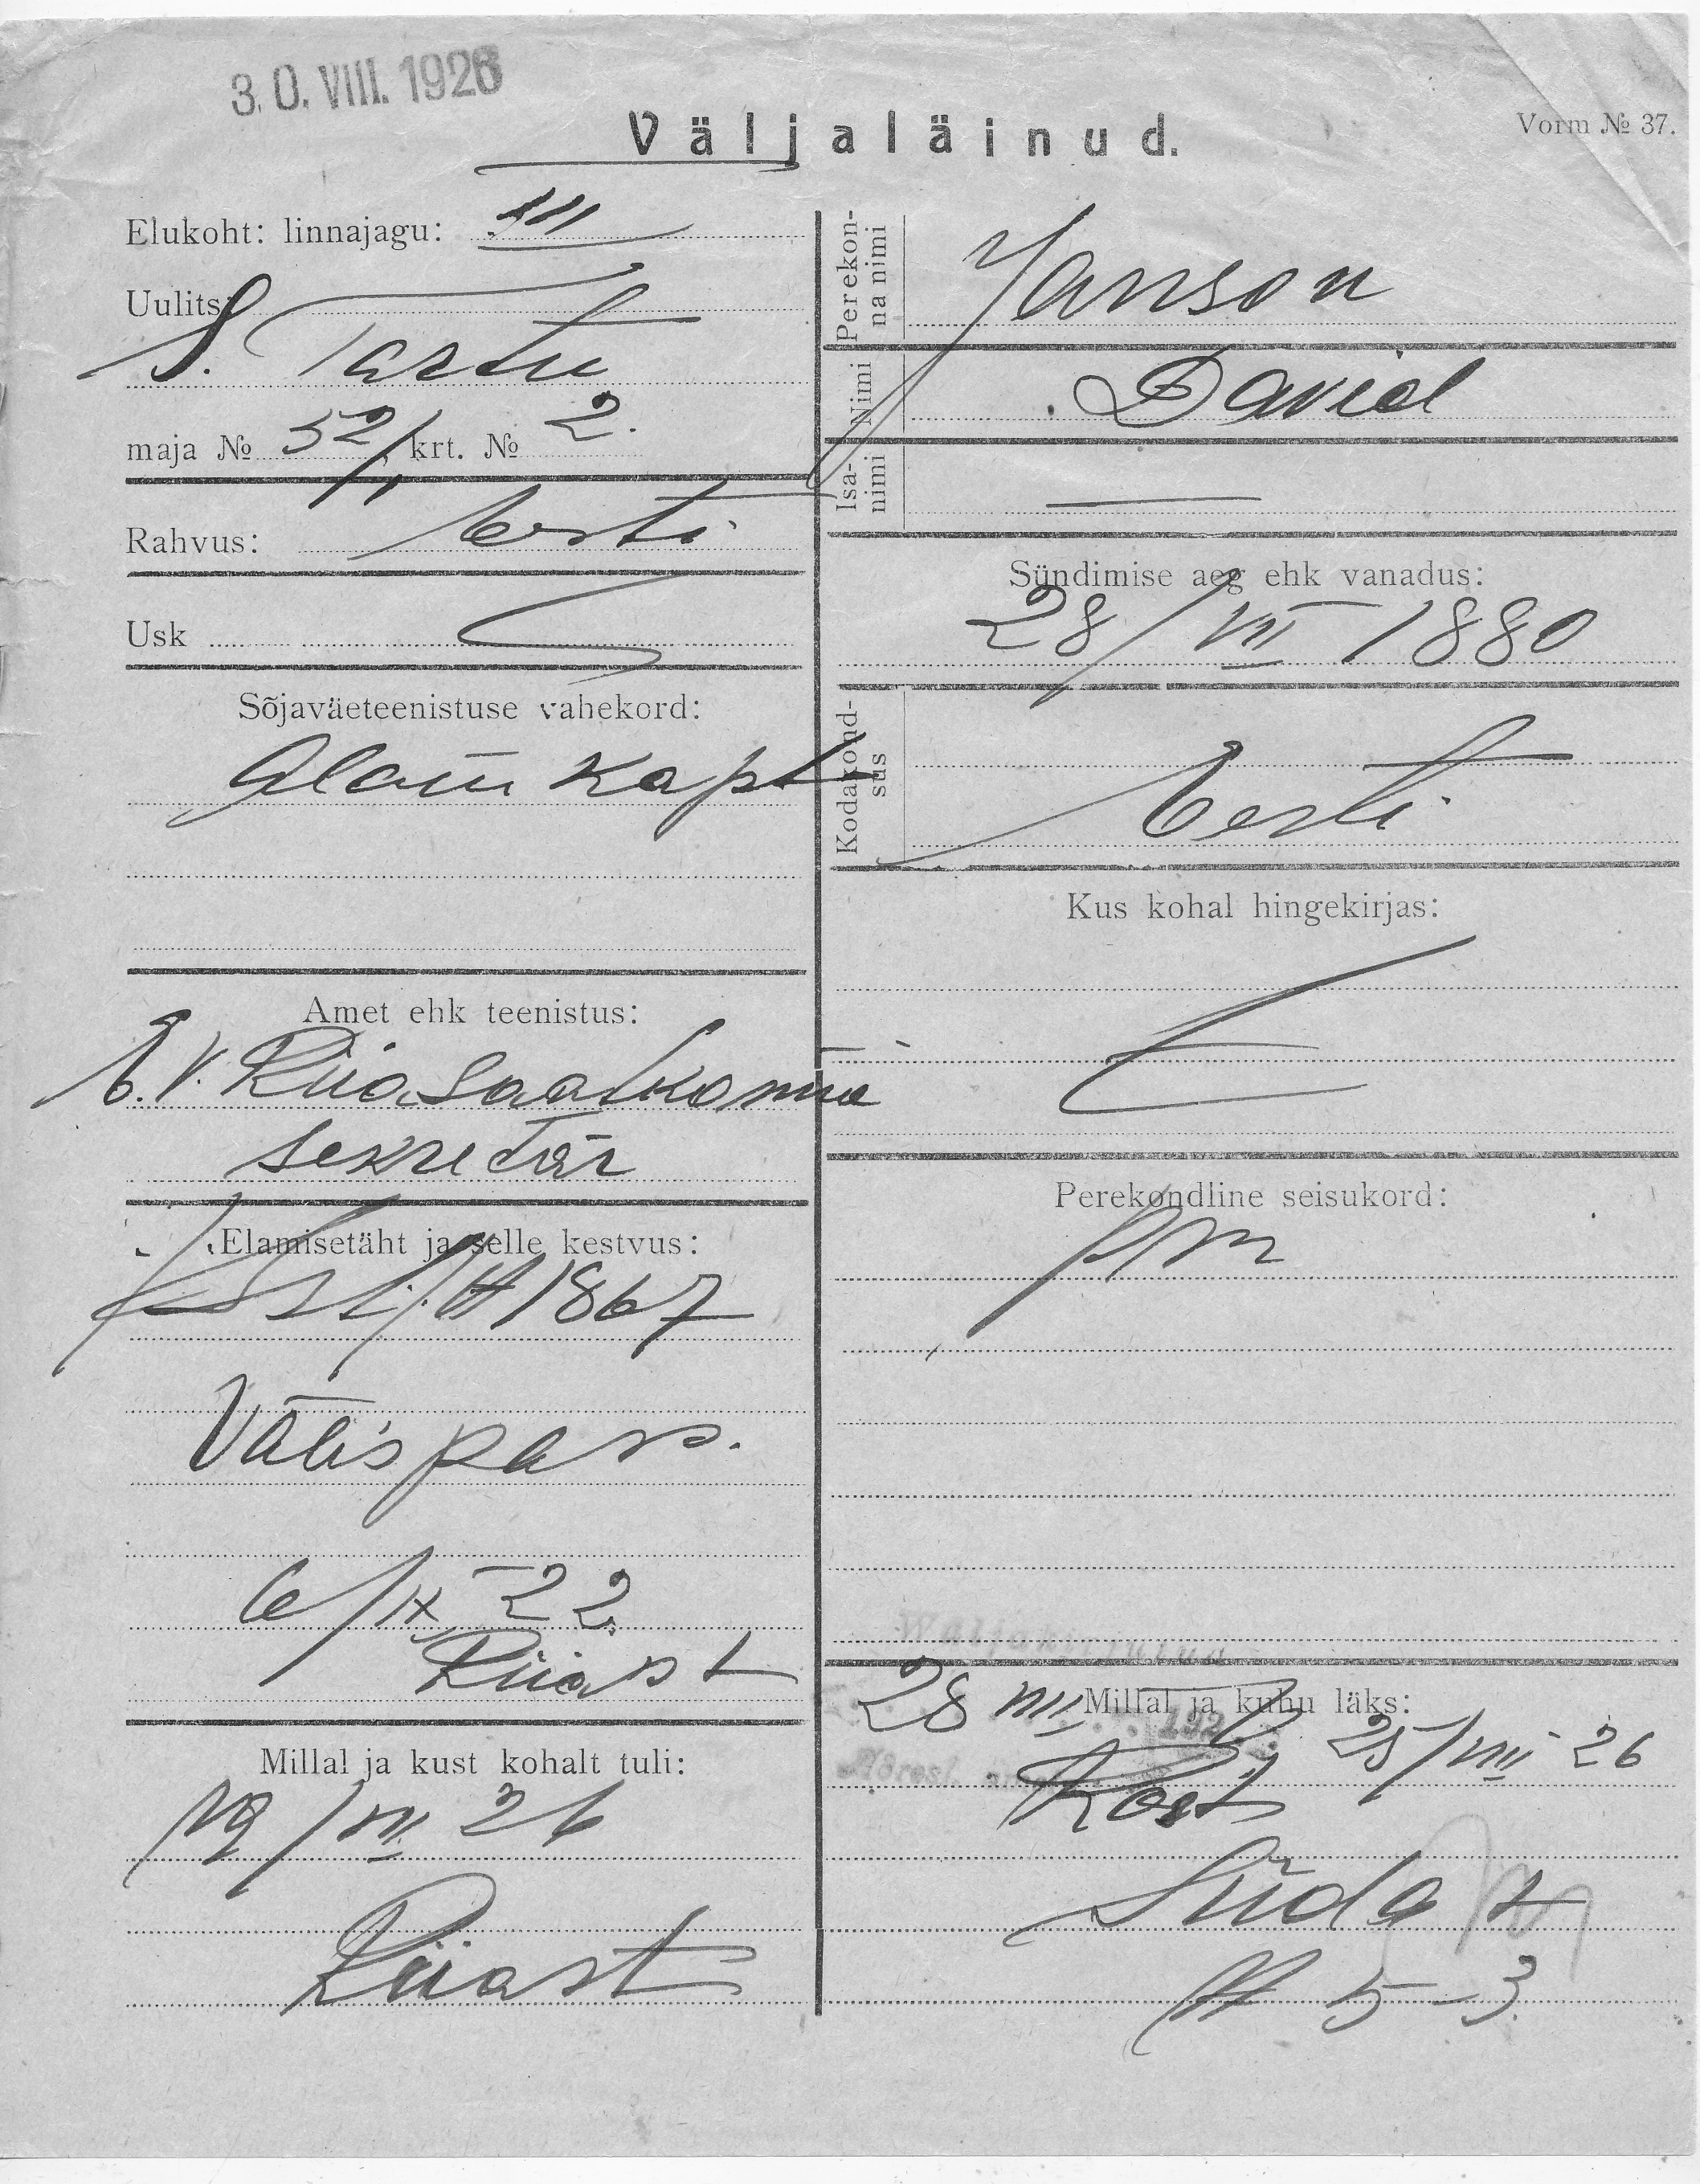 30. VIII. 1926
Väljaläinud.
Vorm № 37.
Elukoht: linnajagu: III
Uulits:
S. Tartu
maja № 52/, krt. № 2.
Rahvus: Eesti
Usk
Sõjaväeteenistuse vahekord:
kapt
Amet ehk teenistus:
E.V. Riia Saatkonna
sekretär
Elamisetäht ja selle kestvus:
№ 1867
Välispass.
6/IX 22
Riiast
Millal ja kust kohalt tuli:
19/VII 26
Riiast
Perekonna nimi
Janson
Nimi
David
Isanimi
Sündimise aeg ehk vanadus:
28/VII 1880
Kodakondsus
Eesti
Kus kohal hingekirjas:
Perekondline seisukord:
Millal ja kuhu läks:
28 VIII
25/VIII 26
Süda t
№ 5-3.